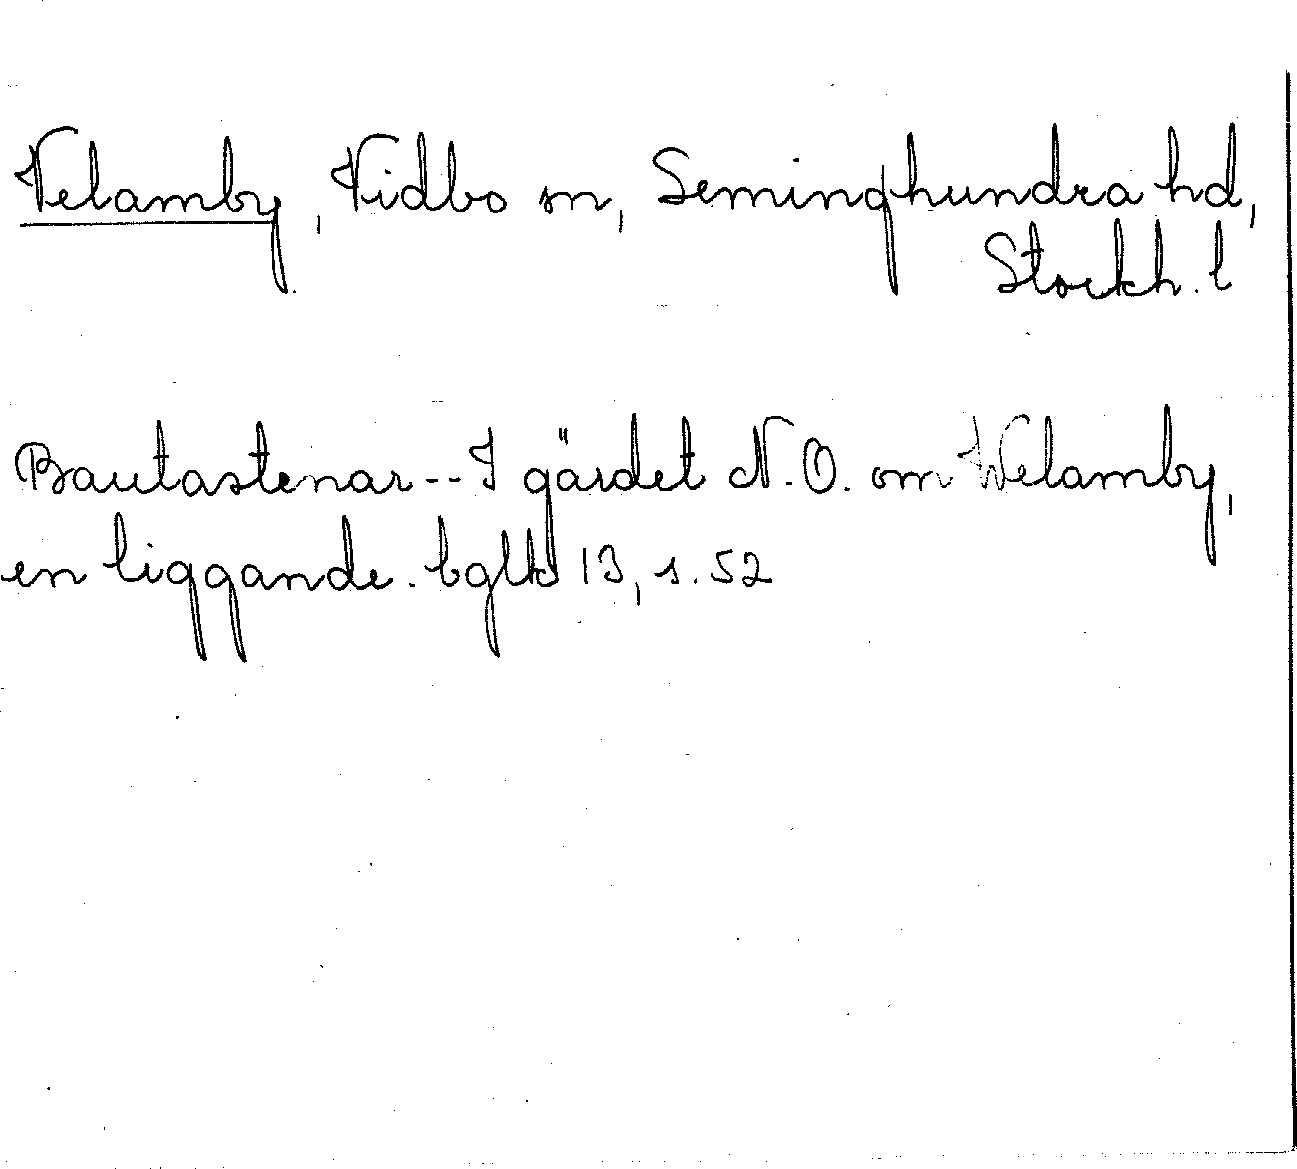 Velamby, Vidbo sn, Seminghundra hd,
Stockh. l
Bautastenar -- I gärdet N.O. om Welamby,
en liggande. bglk 13, s. 52